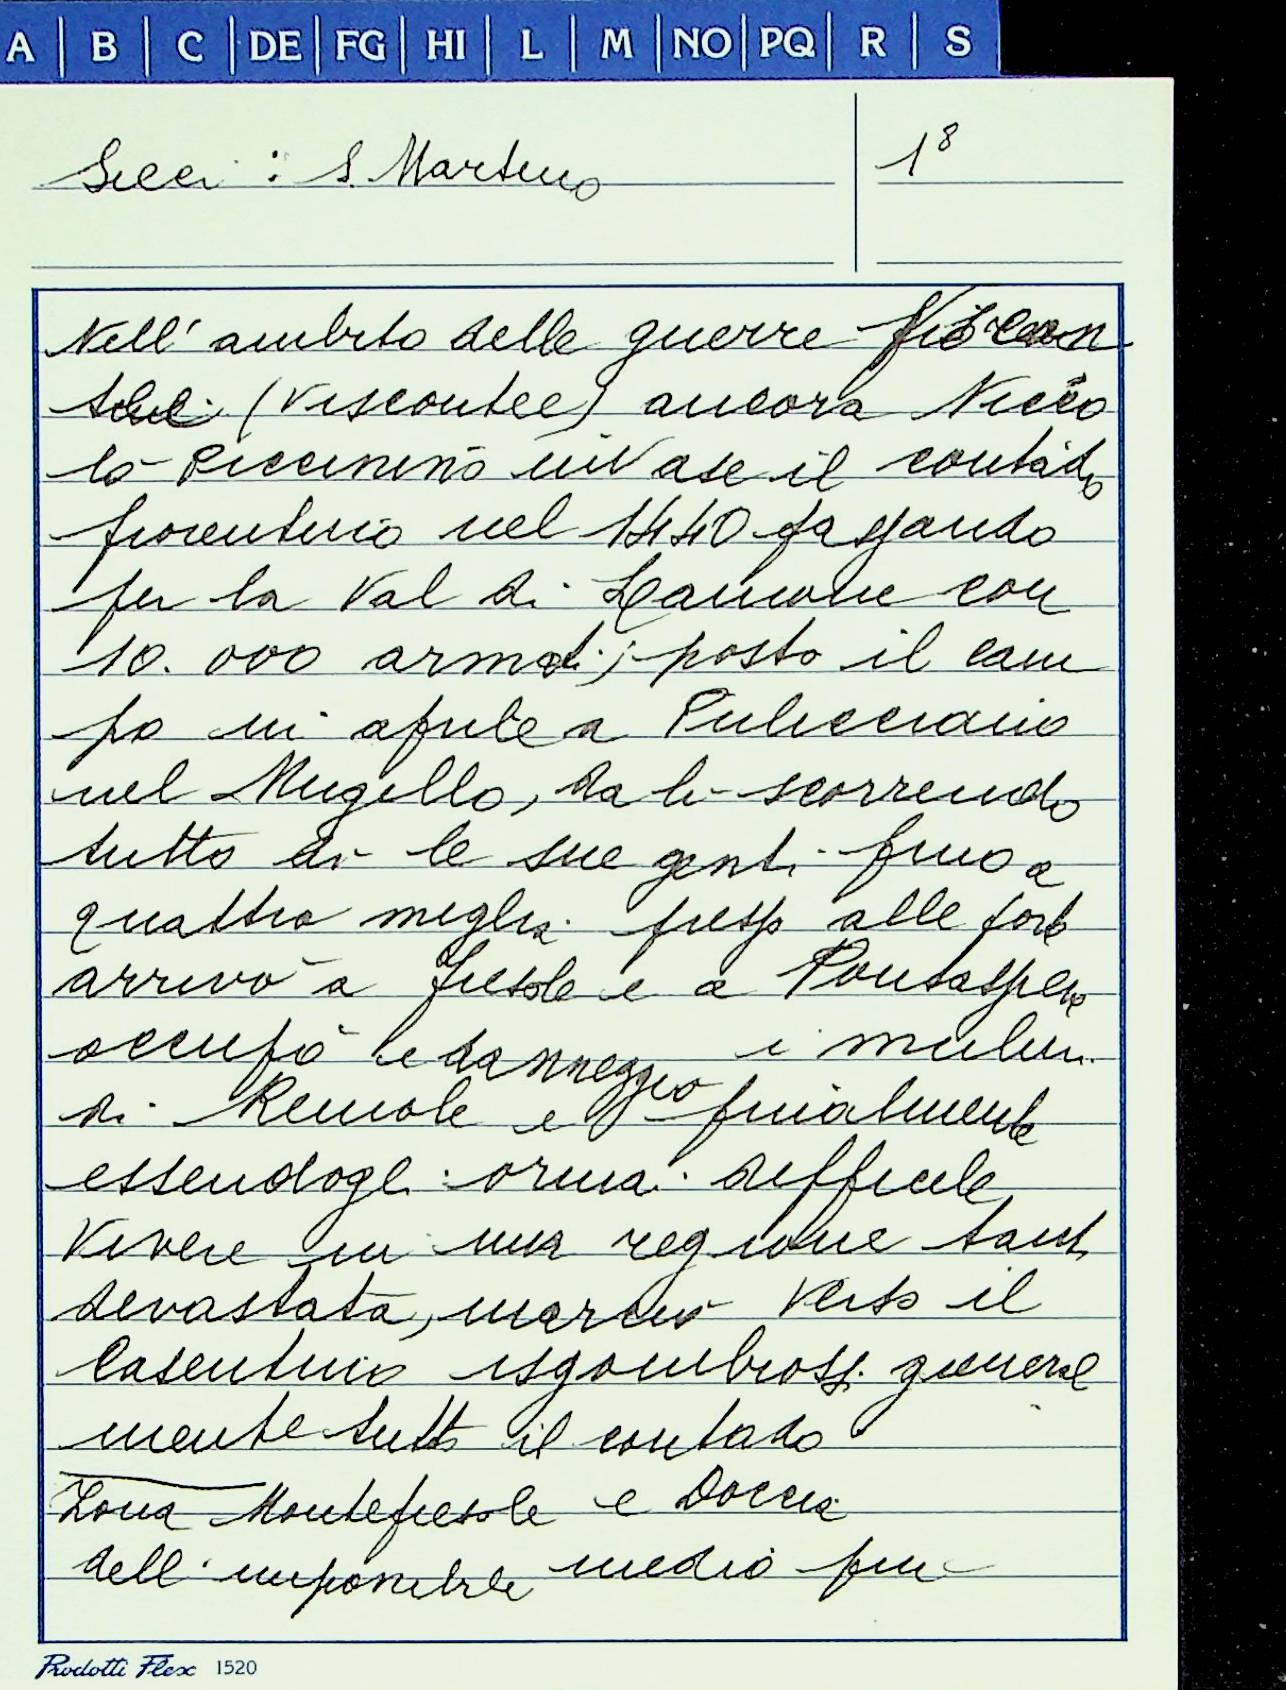 A | B | C | DE | FG | HI | L | M | NO | PQ | R | S
Sieci : S. Martino
1⁸
Nell' ambito delle guerre
(Viscontee) ancora Nicco
lò Piccinino invase il contado
fiorentino nel 1440 passando
per la Val di Lamone con
10.000 armati; posto il cam
po a Pulicciano
nel Mugello, da lì scorrendo
tutto dì le sue genti fino a
quattro miglia presso alle porte
arrivò a Fiesole e a Pontassieve
occupò e danneggiò i mulini
di Remole e finalmente
essendogli ormai difficile
vivere in una regione tanto
devastata, marciò verso il
Casentino general
mente tutto il contado
Zona Montefiesole e Doccia
dell' imponibile medio
Prodotti Flex 1520